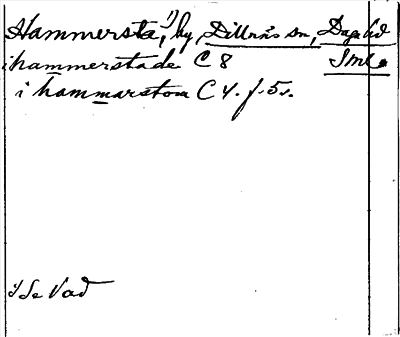 Hammersta,¹⁾ by, Dillnäs sn, Daga hd
i hammerstade C 8 Sml.
i hammarstom C 4. f. 5v.
1) Se Vad